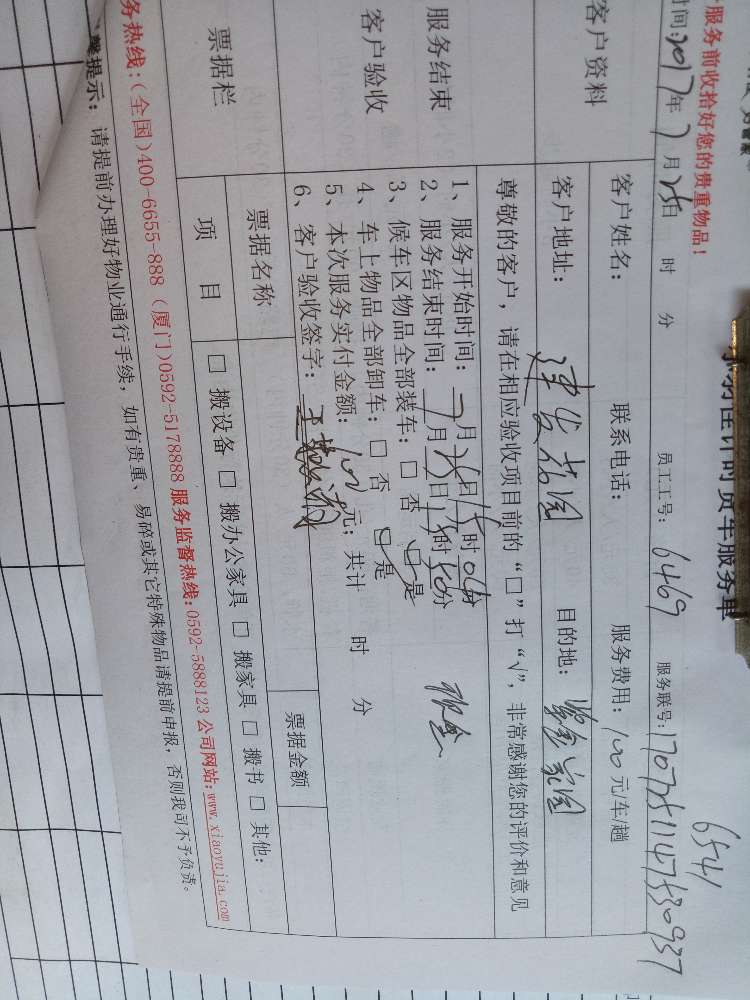 小羽佳计时货车服务单
服务前收拾好您的贵重物品!
时间:2017年7月25日 时 分 员工工号: 6469 服务联号:1707251147530937
6541
客户资料
客户姓名: 联系电话: 服务费用: 100元/车/趟
客户地址: 建发花园 目的地: 紫金家园
尊敬的客户,请在相应验收项目前的“□”打“√”,非常感谢您的评价和意见
服务结束
客户验收
1、服务开始时间: 7月25日15时06分
2、服务结束时间: 7月25日15时50分 现金
3、候车区物品全部装车: □ 否 □是
4、车上物品全部卸车: □ 否 □是
5、本次服务实付金额: 100元; 共计 时 分
6、客户验收签字:
票据栏
票据名称 票据金额
项 目 □ 搬设备 □ 搬办公家具 □ 搬家具 □ 搬书 □ 其他:
务热线:(全国)400-6655-888 (厦门)0592-5178888 服务监督热线:0592-5888123 公司网站:www.xiaoyujia.com
馨提示: 请提前办理好物业通行手续,如有贵重、易碎或其它特殊物品请提前申报,否则我司不予负责。